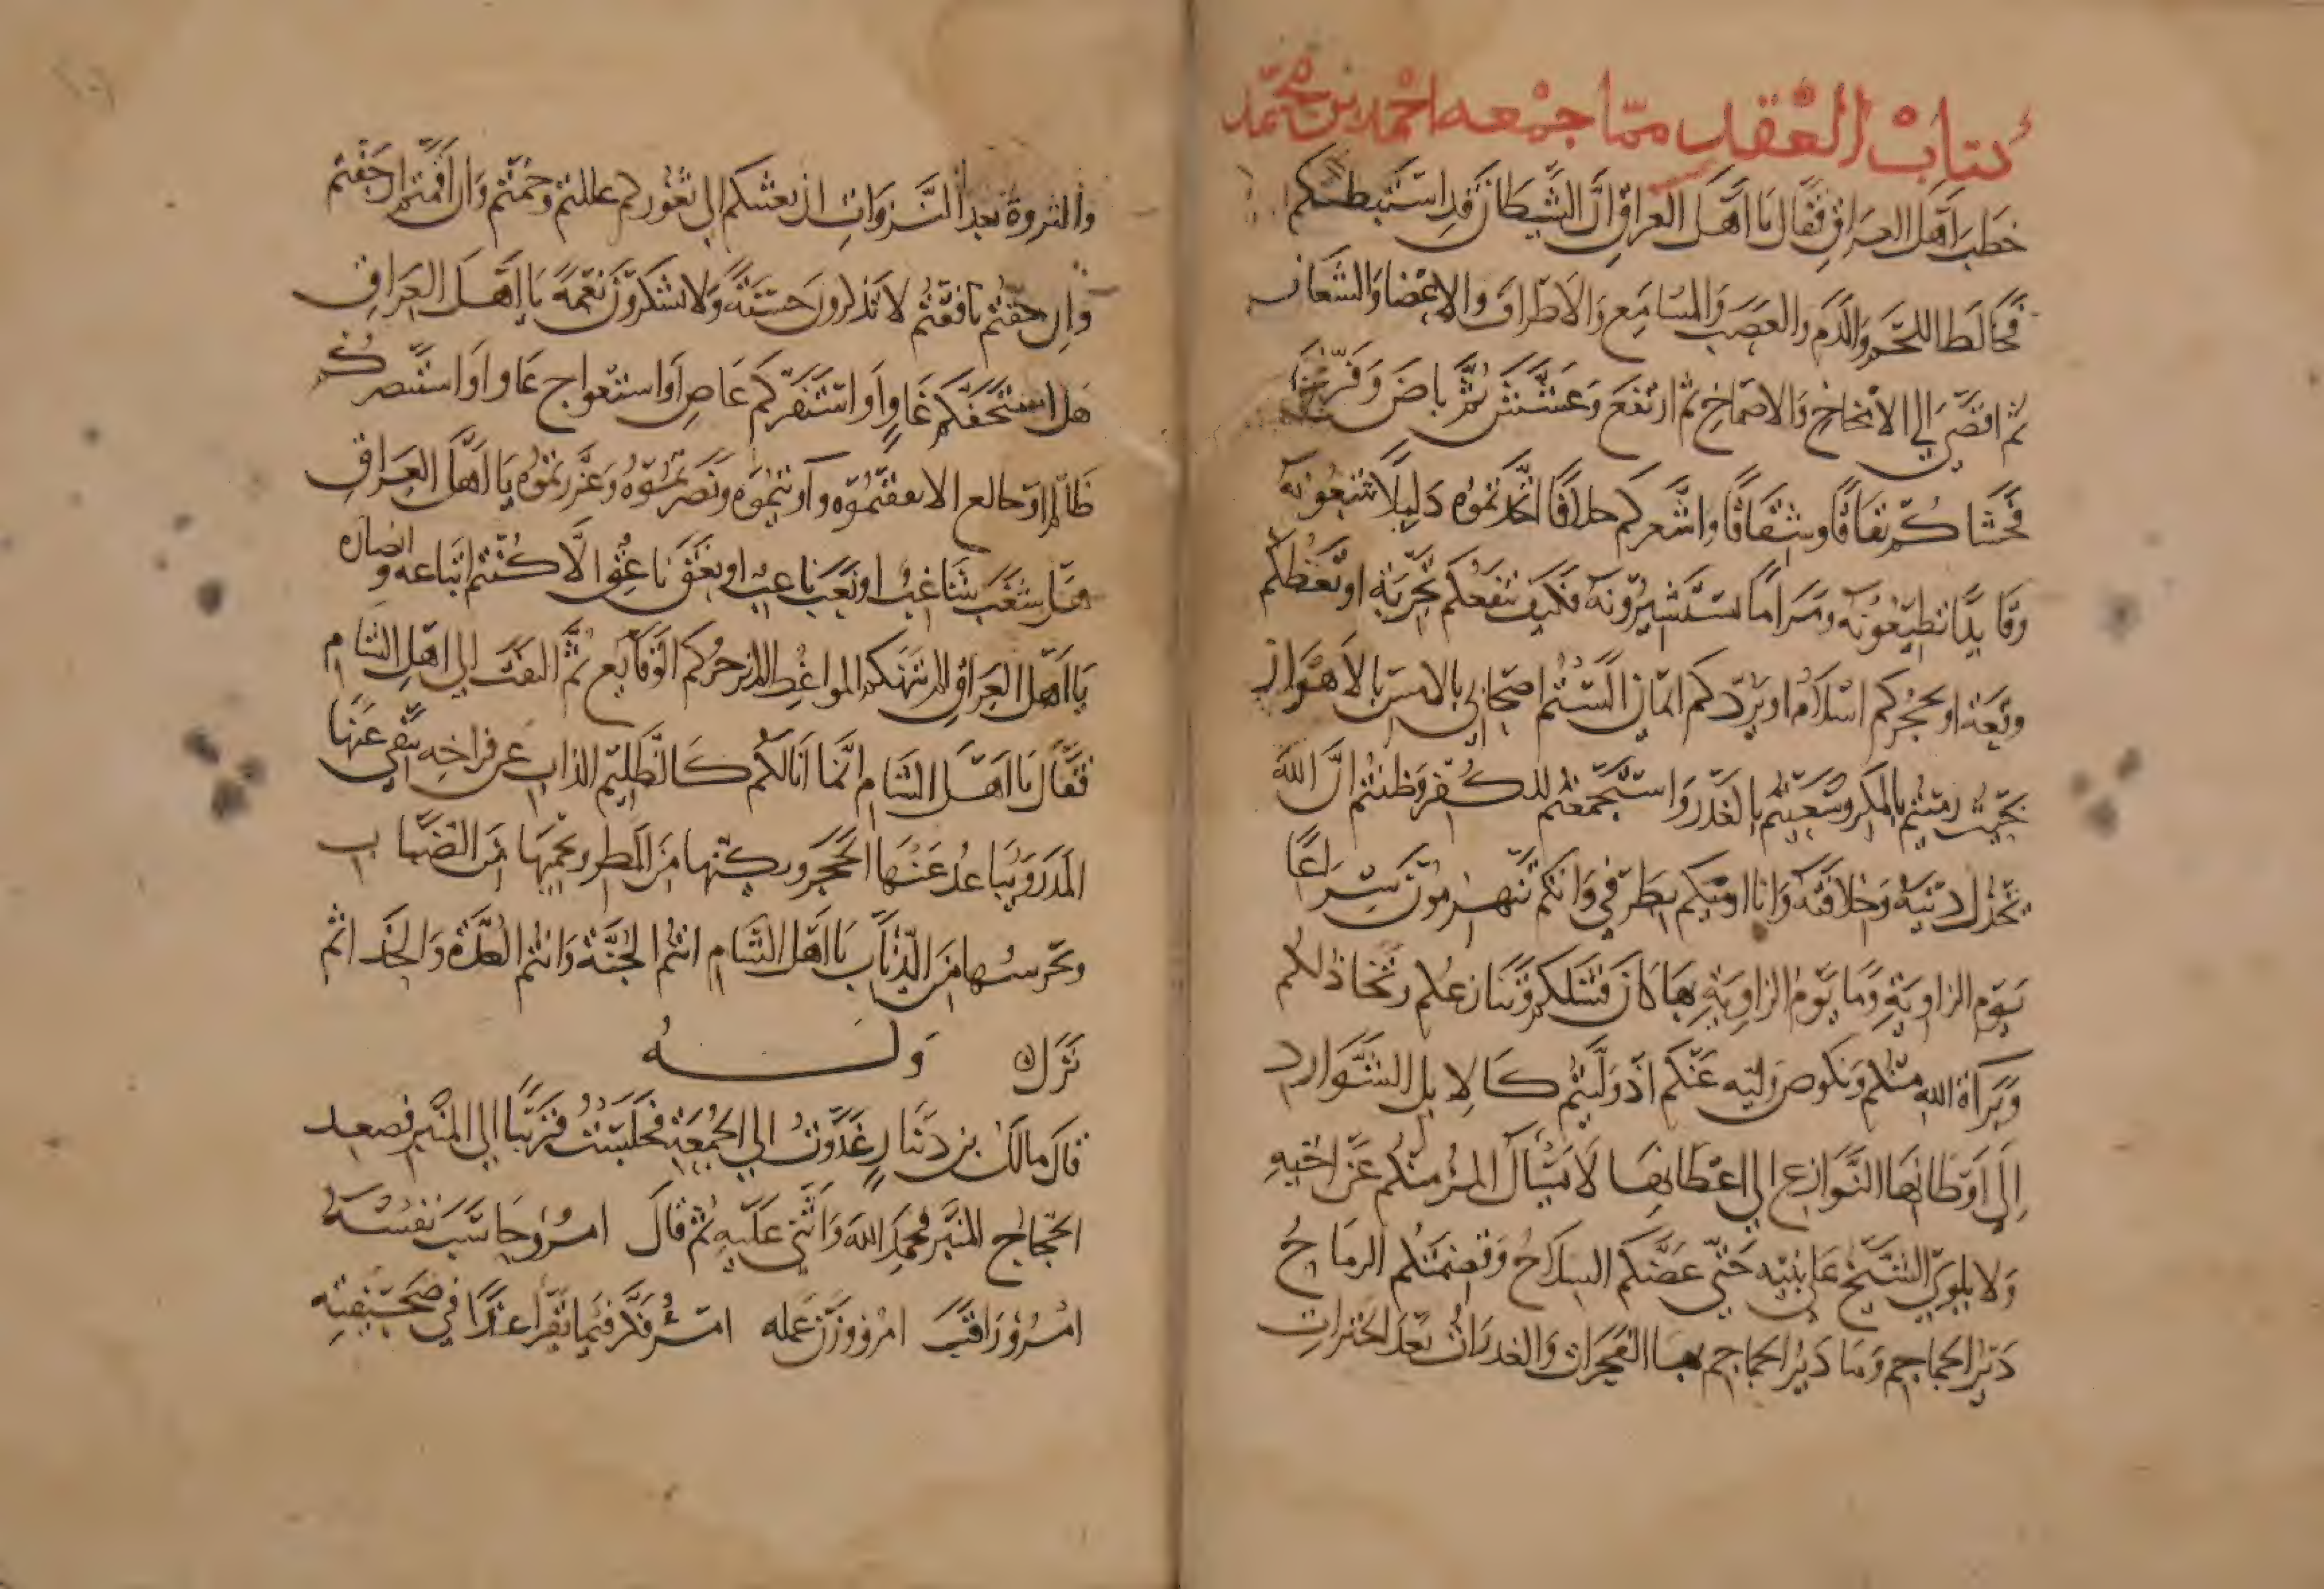 كتاب العقد مما جمعه احمد بن محمد
خطب اهل العراق فقال يا اهل العراق ان الشيطان قد استبطنكم
فخالط اللحم والدم والعصب والمسامع والاطراف والاعضا والشغاف
ثم افضى الى الامخاخ والاصماخ ثم ارتفع وعشش ثم باض وفرخ
فحشاكم نفاقا وشقاقا واشعركم خلافا اتخذتموه دليلا تتبعونه
وقايدا تطيعونه ومرامرا تستشيرونه فكيف تنفعكم تجربة او تعظكم
وقعة او يحجزكم اسلام او يردكم ايمان الستم اصحابي بالامس بالاهواز
بحيث رمتم بالمكر وسعيتم بالغدر واستجمعتم للكفر وظننتم ان الله
يخذل دينه وخلافته وانا ارميكم بطرفي وانتم تنهزمون سراعا
يوم الزاوية وما يوم الزاوية بها كان فشلكم وتنازعكم وتخاذلكم
وبراة الله منكم ونكوص وليه عنكم اذ وليتم كالابل الشوارد
الى اوطانها النوازع الى اعطانها لا يسال المر منكم عن اخيه
ولا يلوي الشيخ على بنيه حتى عضكم السلاح وقصمتكم الرماح
دير الجماجم وما دير الجماجم بها الفجرات والغدرات بعد الخترات
والثروة بعد النزوات ان بعثتكم الى ثغوركم غللتم وخنتم وان امنتم ارجفتم
وان خفتم نافقتم لا تذكرون حسنة ولا تشكرون نعمة يا اهل العراق
هل استخفكم غاو او استنفركم عاص او استغواكم غاو او استنصركم
ظالم او خالع الا وثقتموه وآويتموه ونصرتموه وعزرتموه يا اهل العراق
هل شغب شاغب او نعب ناعب او نعق ناعق الا كنتم اتباعه وانصاره
يا اهل العراق الم تنهكم المواعظ الم تزجركم الوقايع ثم التفت الى اهل الشام
فقال يا اهل الشام انما انا لكم كالظليم الذاب عن فراخه ينفي عنها
المدر ويباعد عنها الحجر ويكنها من المطر ويحميها من الضباب
ويحرسها من الذئاب يا اهل الشام انتم الجنة وانتم العدة والجذ اثم
نزل وله
قال مالك بن دينار غدوت الى الجمعة فجلست قريبا الى المنبر فصعد
الحجاج المنبر فحمد الله واثنى عليه ثم قال امرؤ حاسب نفسه
امرؤ راقب امرؤ وزن عمله امرؤ فكر فيما يقرا غدا في صحيفته